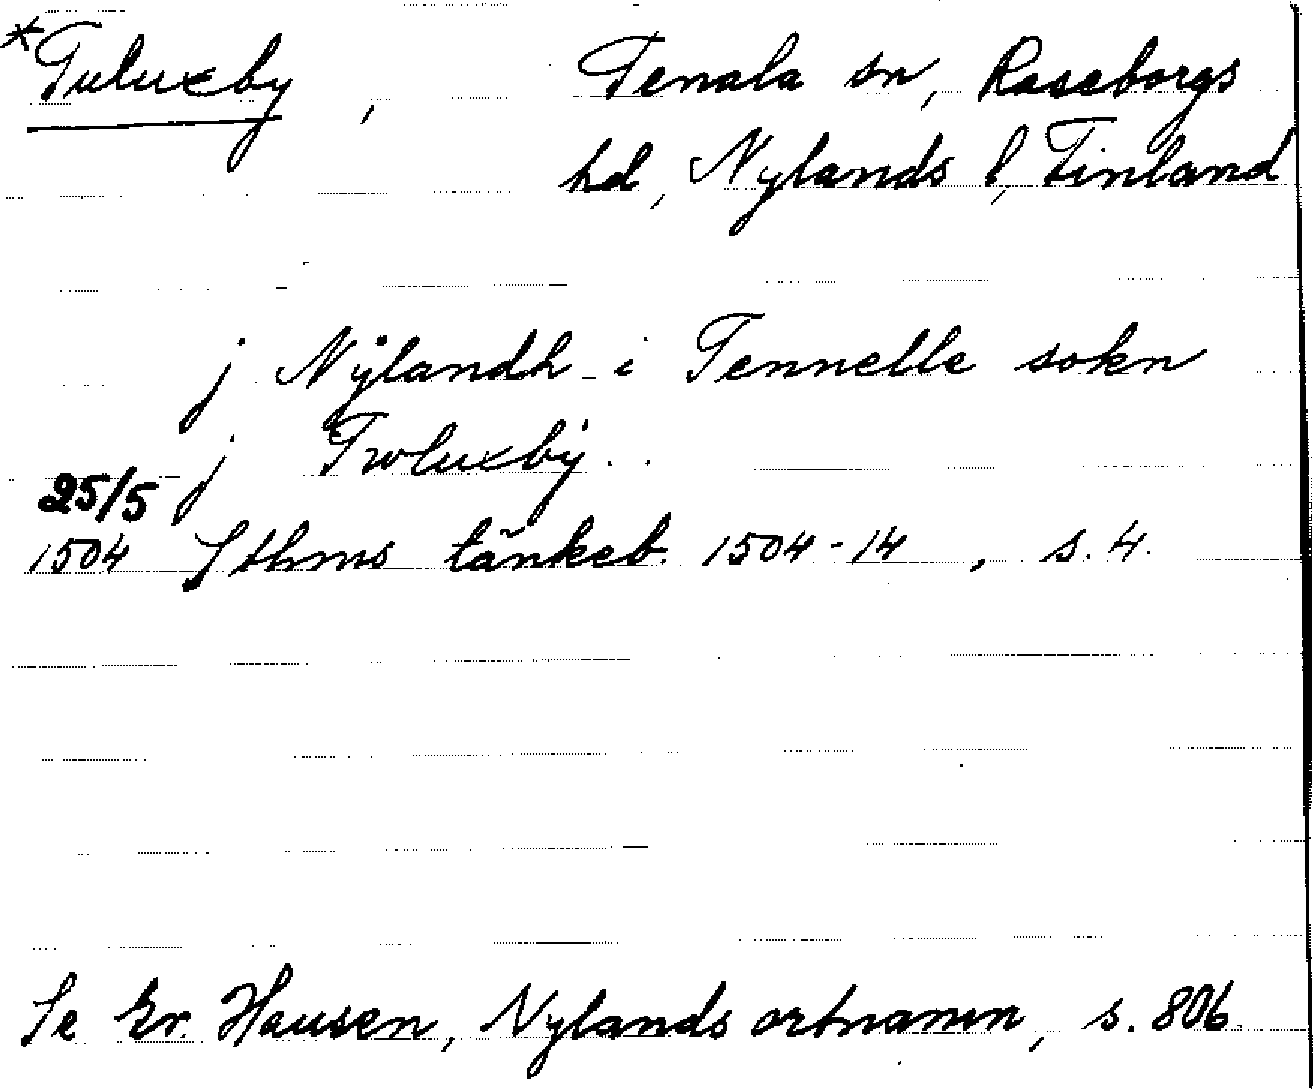 *Tuluxby, Tenala sn, Raseborgs
hd, Nylands l, Finland
j Nÿlandh i Tennelle sokn
j Twluxbÿ..
25/5
1504 Sthms tänkeb. 1504-14, s. 4.
Se Gr. Hausen, Nylands ortnamn, s. 806.